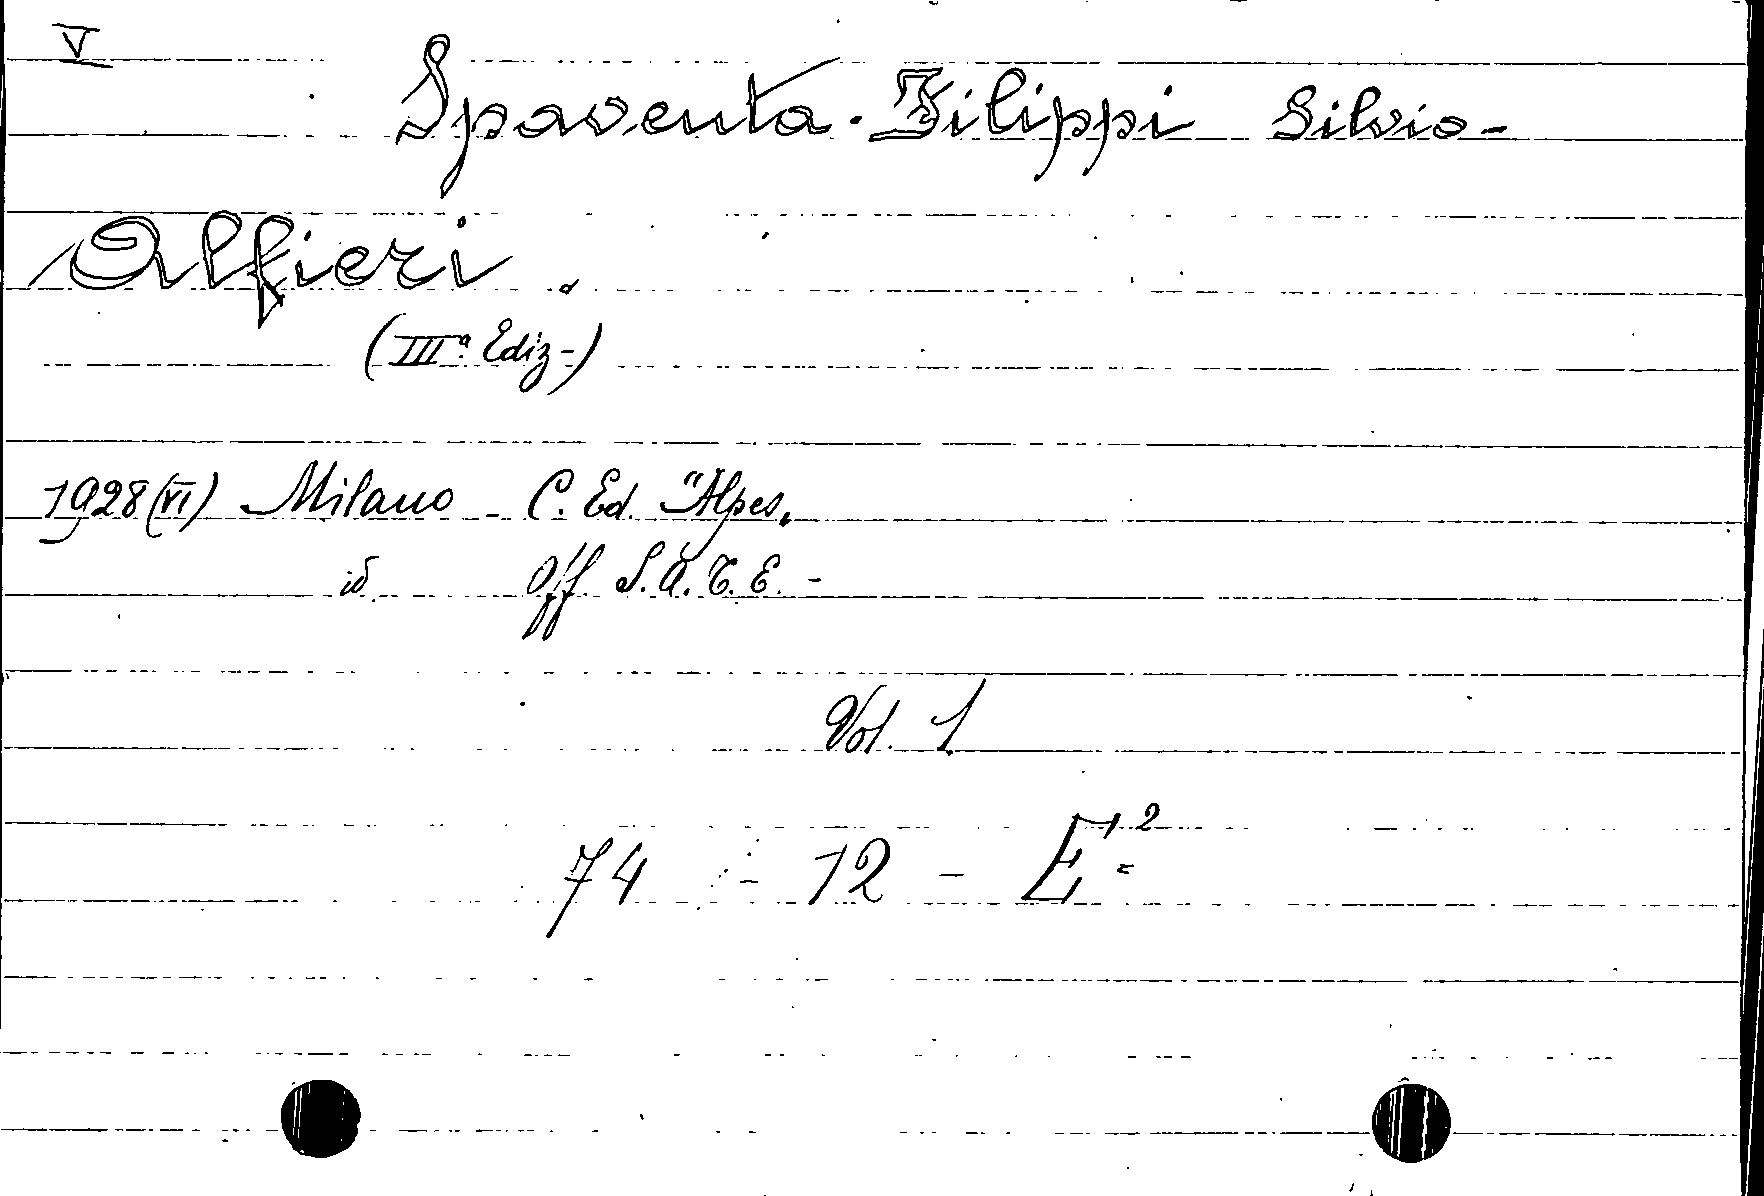 V
Spaventa-Filippi Silvio-
Alfieri.
(IIIa Ediz-)
1928 (VI) Milano - C. Ed. "Alpes„
id Off. S.A.T.E. -
Vol. 1
74 - 12 - E²=